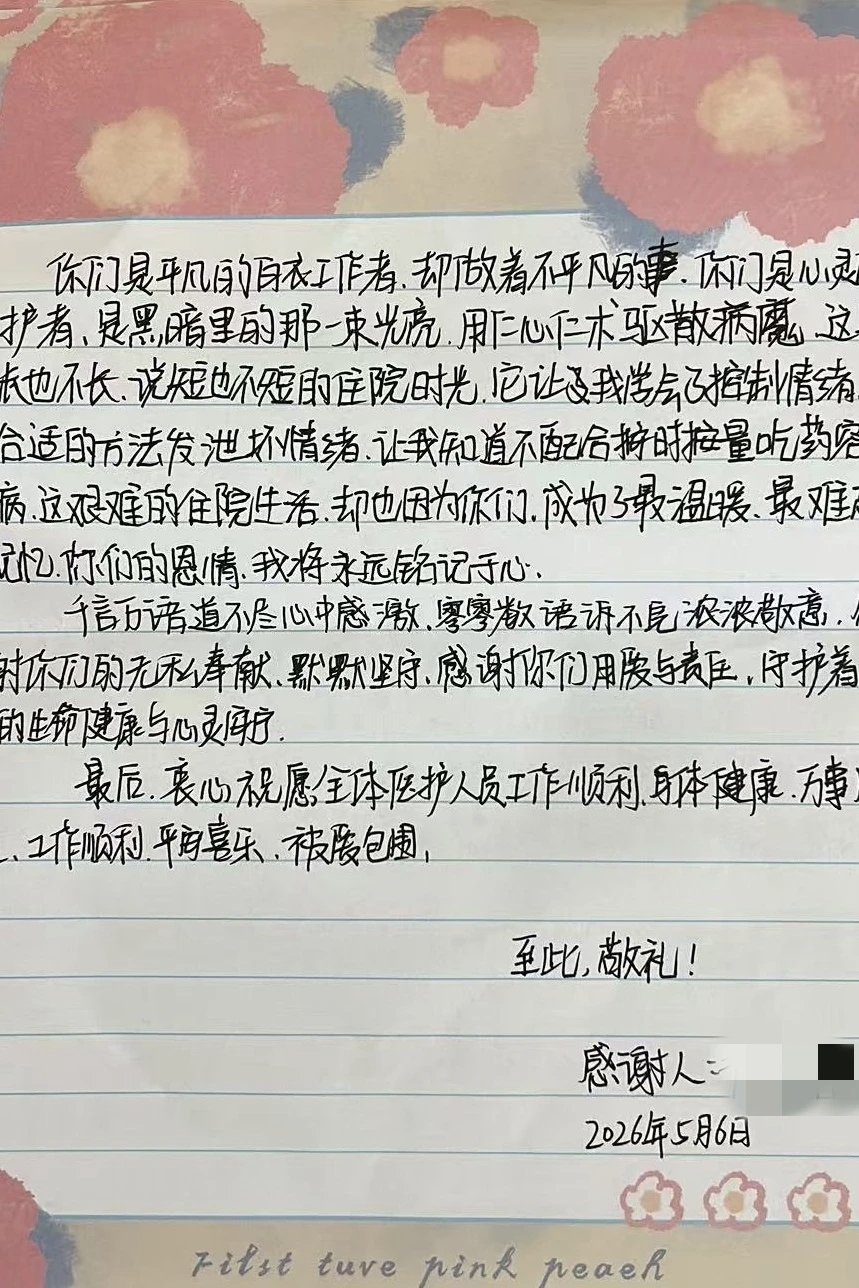 你们是平凡的白衣工作者、却做着不平凡的事、你们是心灵
护者、是黑暗里的那一束光亮、用仁心仁术驱散病魔、这
也不长、说短也不短的住院时光、它让我学会了控制情绪
合适的方法发泄坏情绪、让我知道不配合按时按量吃药容
病、这艰难的住院生活、却也因为你们、成为了最温暖、最难
记忆、你们的恩情、我将永远铭记于心、
千言万语道不尽心中感激、寥寥数语诉不完浓浓敬意、
谢你们的无私奉献、默默坚守、感谢你们用爱与责任、守护着
的生命健康与心灵安宁、
最后、衷心祝愿全体医护人员工作顺利、身体健康、万事
、工作顺利、平安喜乐、被爱包围、
至此,敬礼!
感谢人:
2026年5月6日
First tuve pink peach